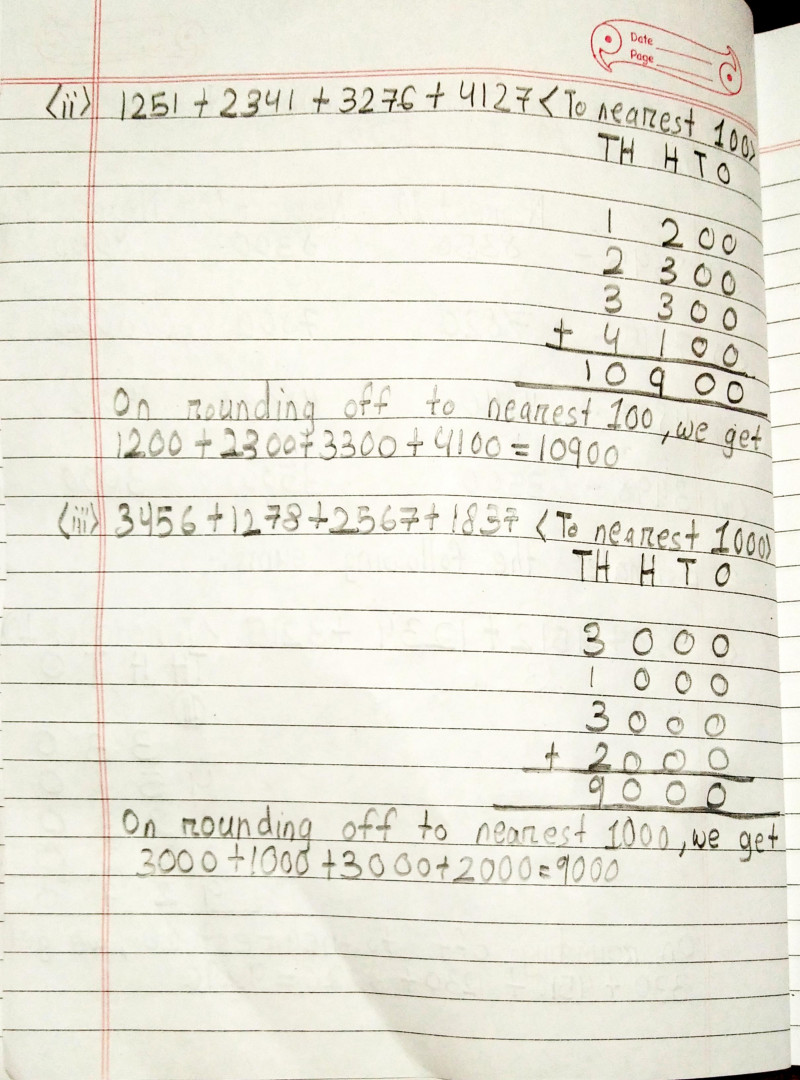 Date
Page
<ii> 1251 + 2341 + 3276 + 4127 <To nearest 100>
TH H T O
1 2 0 0
2 3 0 0
3 3 0 0
+ 4 1 0 0
1 0 9 0 0
On rounding off to nearest 100, we get
1200 + 2300 + 3300 + 4100 = 10900
<iii> 3456 + 1278 + 2567 + 1837 <To nearest 1000>
TH H T O
3 0 0 0
1 0 0 0
3 0 0 0
+ 2 0 0 0
9 0 0 0
On rounding off to nearest 1000, we get
3000 + 1000 + 3000 + 2000 = 9000